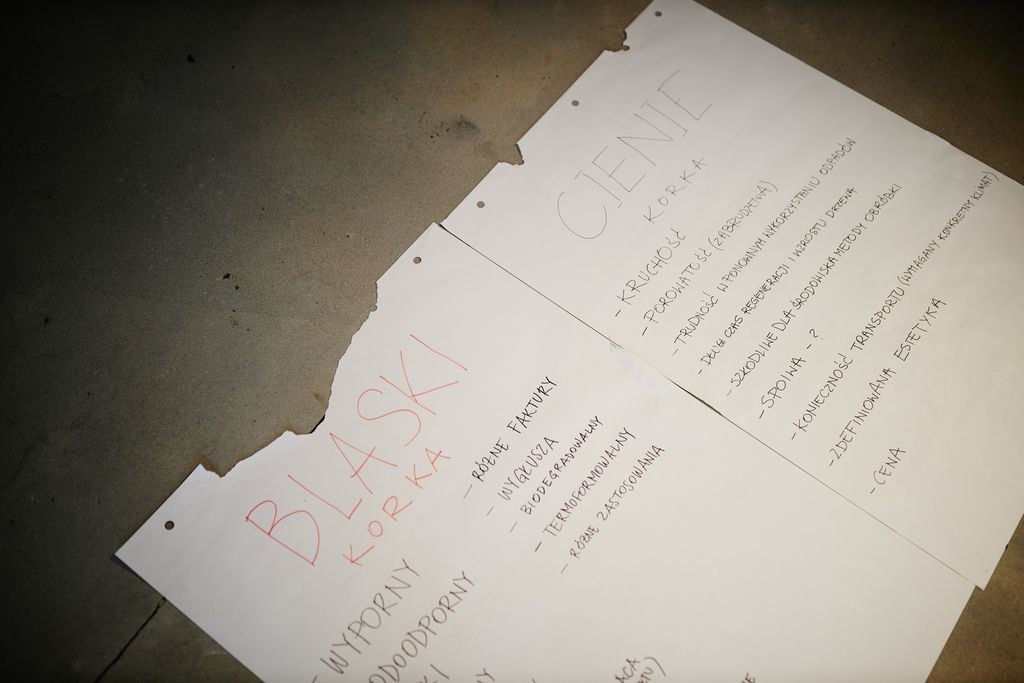 BLASKI
KORKA
- WYPORNY
- RÓŻNE FAKTURY
- WYGŁUSZA
- BIODEGRADOWALNY
- TERMOFORMOWALNY
- RÓŻNE ZASTOSOWANIA
CIENIE
KORKA
- KRUCHOŚĆ
- POROWATOŚĆ (ZABRUDZENIA)
- TRUDNOŚĆ W PONOWNYM WYKORZYSTANIU ODPADÓW
- DŁUGI CZAS REGENERACJI I WZROSTU DRZEWA
- SZKODLIWE DLA ŚRODOWISKA METODY OBRÓBKI
- SPOIWA - ?
- KONIECZNOŚĆ TRANSPORTU (WYMAGANY KONKRETNY KLIMAT)
- ZDEFINIOWANA ESTETYKA
- CENA